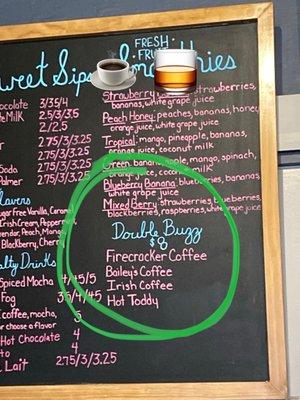 FRESH
FRUIT
Sweet Sips Smoothies
Strawberry Banana: strawberries,
bananas, white grape juice
Peach Honey: peaches, bananas, honey,
orange juice, white grape juice
Tropical: mango, pineapple, bananas,
orange juice, coconut milk
Green: banana, apple, mango, spinach,
orange juice, coconut milk
Blueberry Banana: blueberries, bananas,
white grape juice
Mixed Berry: strawberries, blueberries,
blackberries, raspberries, white grape juice
Double Buzz
$8
Firecracker Coffee
Bailey's Coffee
Irish Coffee
Hot Toddy
3/3.5/4
Milk 2.5/3/3.5
2/2.5
2.75/3/3.25
2.75/3/3.25
Soda 2.75/3/3.25
Palmer 2.75/3/3.25
Flavors
Sugar Free Vanilla, Caramel,
Irish Cream, Peppermint,
Lavender, Peach, Mango,
Blackberry, Cherry
Specialty Drinks
Spiced Mocha 4/4.5/5
Fog 3.5/4/4.5
coffee, mocha, 5
or choose a flavor
Hot Chocolate 4
4
Lait 2.75/3/3.25